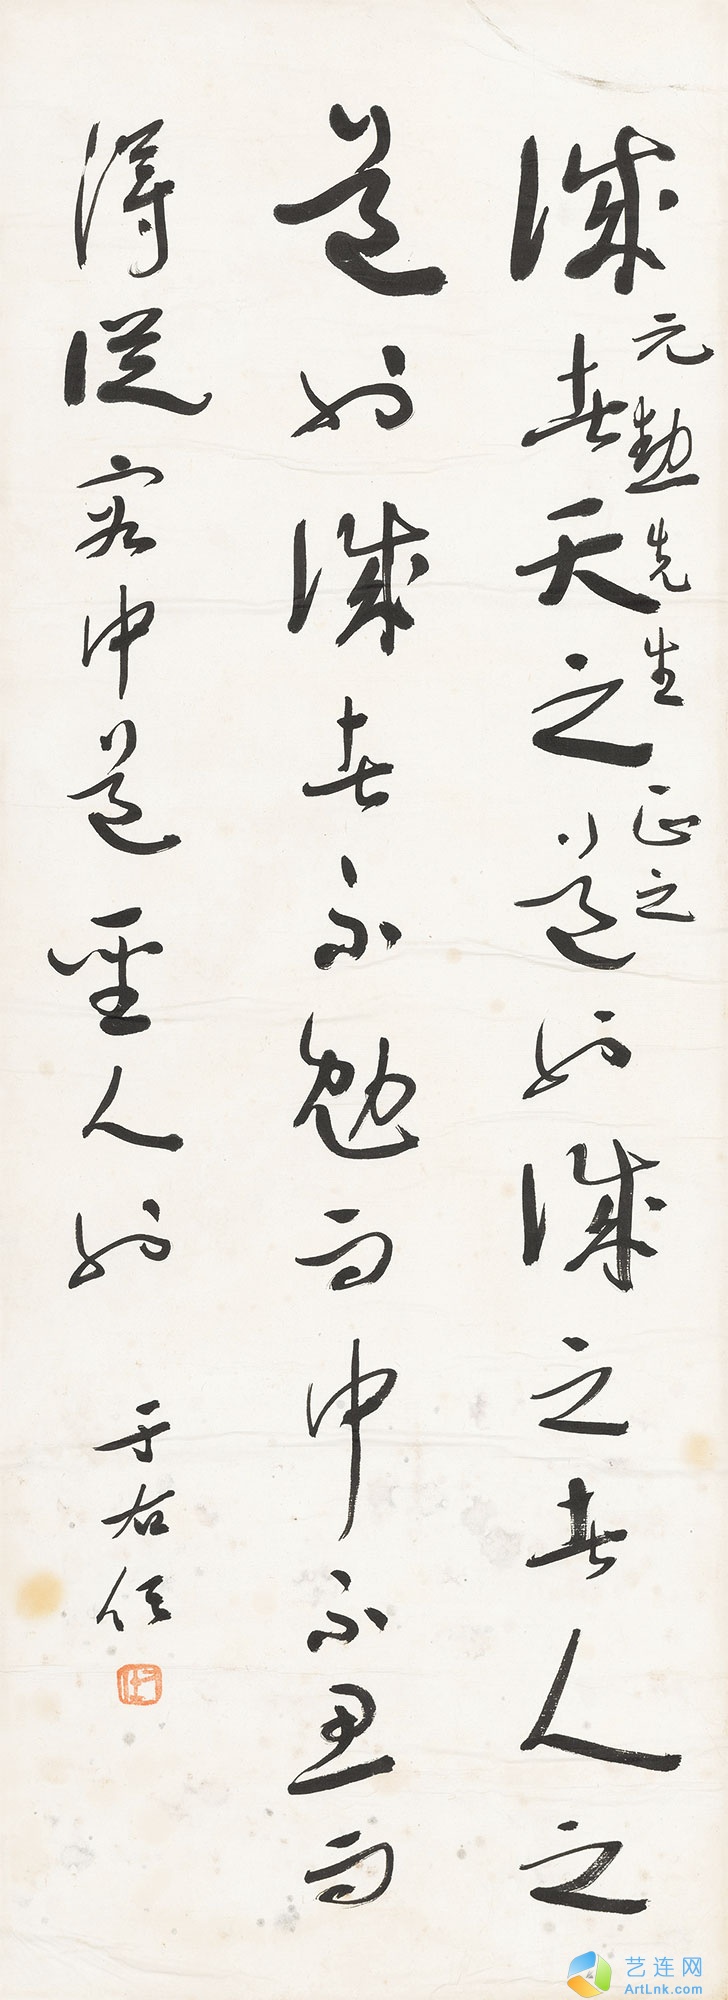 元先生正之
誠者天之道也誠之者人之
道也誠者不勉而中不思而
得從容中道聖人也
于右任
艺连网
ArtLnk.com